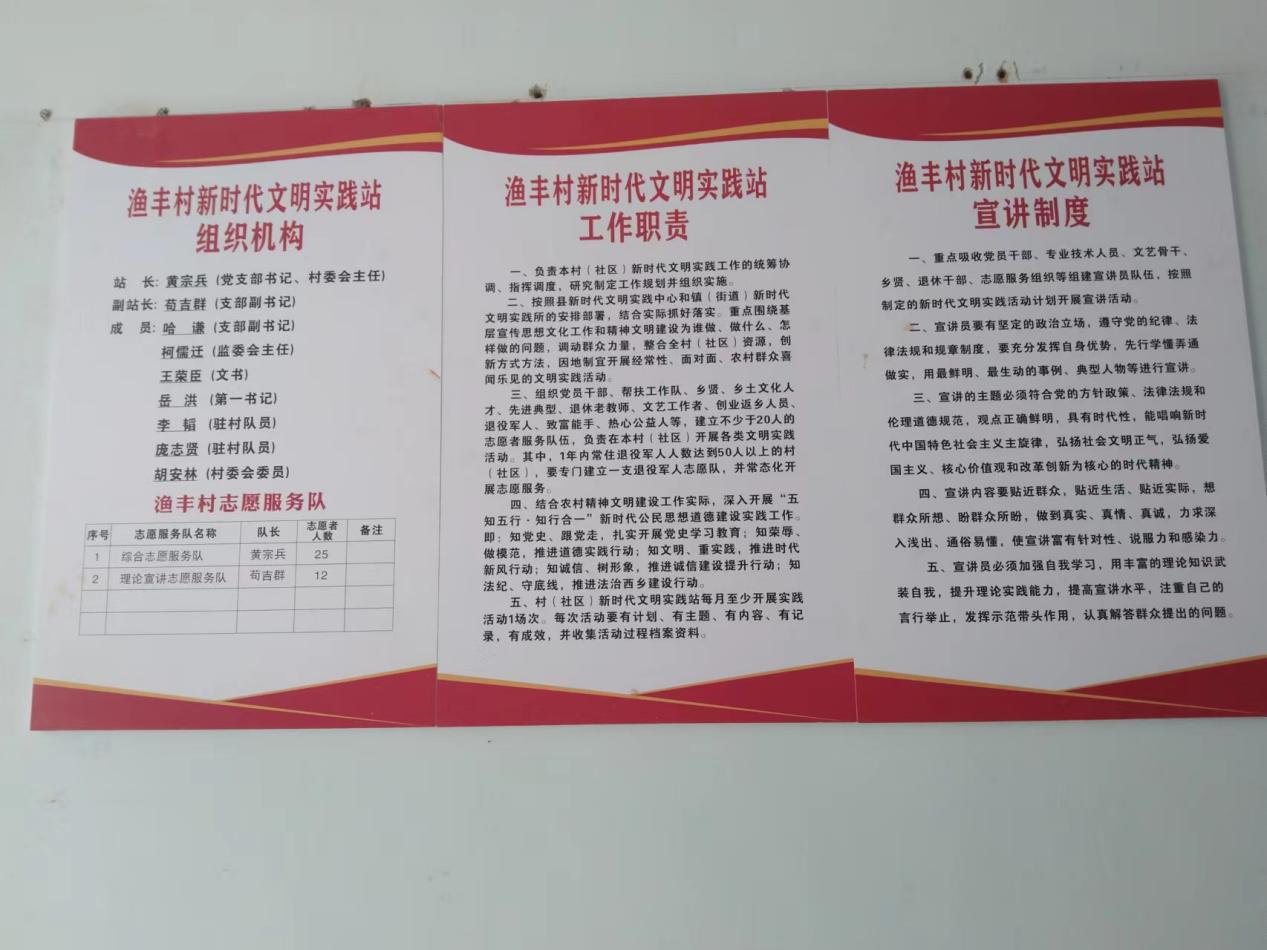 渔丰村新时代文明实践站
组织机构
站　长: 黄宗兵 (党支部书记、村委会主任)
副站长: 苟吉群 (支部副书记)
成　员: 哈　谦 (支部副书记)
柯儒迁 (监委会主任)
王荣臣 (文书)
岳　洪 (第一书记)
李　韬 (驻村队员)
庞志贤 (驻村队员)
胡安林 (村委会委员)
渔丰村志愿服务队
序号 志愿服务队名称 队长 志愿者人数 备注
1 综合志愿服务队 黄宗兵 25
2 理论宣讲志愿服务队 苟吉群 12
渔丰村新时代文明实践站
工作职责
一、负责本村（社区）新时代文明实践工作的统筹协
调、指挥调度，研究制定工作规划并组织实施。
二、按照县新时代文明实践中心和镇（街道）新时代
文明实践所的安排部署，结合实际抓好落实。重点围绕基
层宣传思想文化工作和精神文明建设为谁做、做什么、怎
样做的问题，调动群众力量，整合全村（社区）资源，创
新方式方法，因地制宜开展经常性、面对面、农村群众喜
闻乐见的文明实践活动。
三、组织党员干部、帮扶工作队、乡贤、乡土文化人
才、先进典型、退休老教师、文艺工作者、创业返乡人员、
退役军人、致富能手、热心公益人等，建立不少于20人的
志愿者服务队伍，负责在本村（社区）开展各类文明实践
活动。其中，1年内常住退役军人人数达到50人以上的村
（社区），要专门建立一支退役军人志愿队，并常态化开
展志愿服务。
四、结合农村精神文明建设工作实际，深入开展“五
知五行·知行合一”新时代公民思想道德建设实践工作。
即：知党史、跟党走，扎实开展党史学习教育；知荣辱、
做模范，推进道德实践行动；知文明、重实践，推进时代
新风行动；知诚信、树形象，推进诚信建设提升行动；知
法纪、守底线，推进法治西乡建设行动。
五、村（社区）新时代文明实践站每月至少开展实践
活动1场次。每次活动要有计划、有主题、有内容、有记
录，有成效，并收集活动过程档案资料。
渔丰村新时代文明实践站
宣讲制度
一、重点吸收党员干部、专业技术人员、文艺骨干、
乡贤、退休干部、志愿服务组织等组建宣讲员队伍，按照
制定的新时代文明实践活动计划开展宣讲活动。
二、宣讲员要有坚定的政治立场，遵守党的纪律、法
律法规和规章制度，要充分发挥自身优势，先行学懂弄通
做实，用最鲜明、最生动的事例、典型人物等进行宣讲。
三、宣讲的主题必须符合党的方针政策、法律法规和
伦理道德规范，观点正确鲜明，具有时代性，能唱响新时
代中国特色社会主义主旋律，弘扬社会文明正气，弘扬爱
国主义、核心价值观和改革创新为核心的时代精神。
四、宣讲内容要贴近群众，贴近生活、贴近实际，想
群众所想、盼群众所盼，做到真实、真情、真诚，力求深
入浅出、通俗易懂，使宣讲富有针对性、说服力和感染力。
五、宣讲员必须加强自我学习，用丰富的理论知识武
装自我，提升理论实践能力，提高宣讲水平，注重自己的
言行举止，发挥示范带头作用，认真解答群众提出的问题。